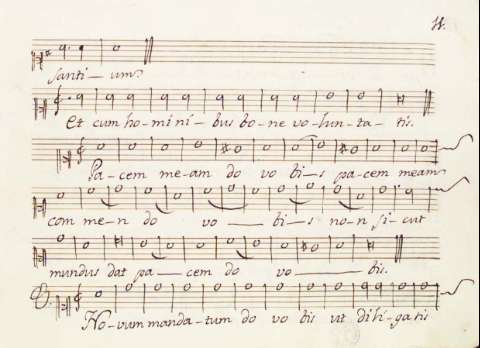 11.
santi—um?
Et cum ho-mi ni-bus bo-ne vo-lun-ta-tis.
Pa-cem me-am do vo bi-s pa-cem meam
com me-n do vo—bi-s no-n si-cut
mundus dat pa—cem do vo—bis.
No-vum manda-tum do vo bis ut di li-ga tis